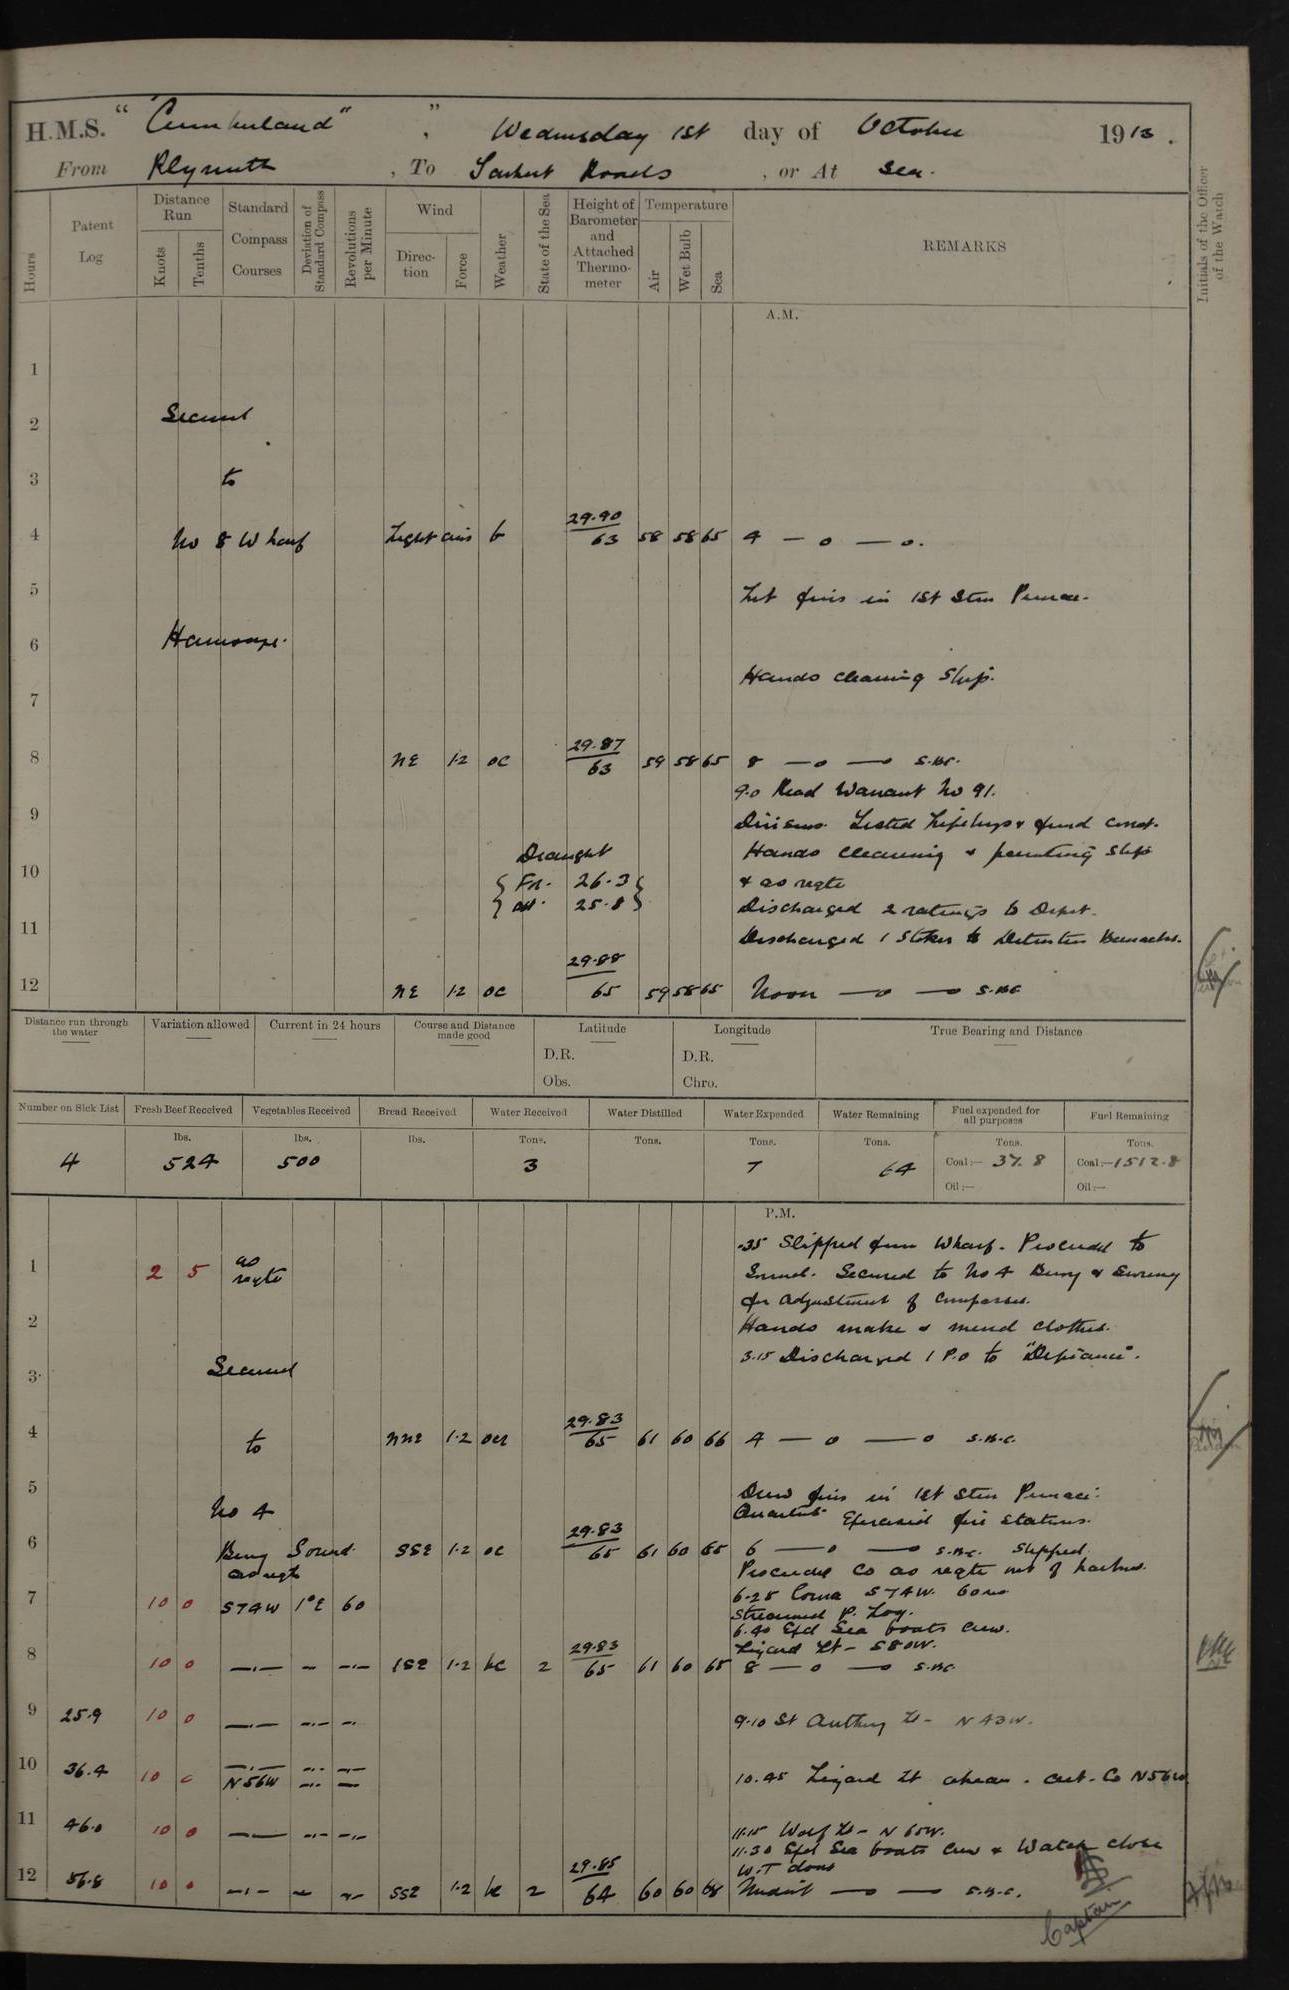 H.M.S. "Cumberland", Wednesday 1st day of October 1913.
From Plymouth, To Tarbert Roads, or At Sea.
Hours
Patent Log
Distance Run
Knots
Tenths
Standard Compass Courses
Deviation of Standard Compass
Revolutions per Minute
Wind
Direction
Force
Weather
State of the Sea
Height of Barometer and Attached Thermometer
Temperature
Air
Wet Bulb
Sea
REMARKS
Initials of the Officer of the Watch
A.M.
1
2 Secured
3 to
4 No 8 Wharf Light airs b 29.90 63 58 58 65 4 — o — o.
5 Lit fires in 1st Stm Pinnace.
6 Hamoaze.
Hands cleaning Ship.
7
8 NE 1.2 oc 29.87 63 59 58 65 8 — o — o S.B.C.
9.0 Read Warrant No 91.
9 Divisions. Tested Lifebuoys & found correct.
Draught Hands cleaning & painting ship
10 For. 26.3 & as reqte
Aft. 25.8 Discharged 2 ratings to Depot.
11 Discharged 1 Stoker to Detention Barracks.
29.88
12 NE 1.2 oc 65 59 58 65 Noon — o — o S.B.C
Distance run through the water
Variation allowed
Current in 24 hours
Course and Distance made good
Latitude
D.R.
Obs.
Longitude
D.R.
Chro.
True Bearing and Distance
Number on Sick List
Fresh Beef Received
Vegetables Received
Bread Received
Water Received
Water Distilled
Water Expended
Water Remaining
Fuel expended for all purposes
Fuel Remaining
lbs. lbs. lbs. Tons. Tons. Tons. Tons. Tons. Tons.
4 524 500 3 7 64 Coal:— 37.8 Coal:—1512.8
Oil:— Oil:—
P.M.
.35 Slipped from Wharf. Proceeded to
1 2 5 as reqte Sound. Secured to No 4 Buoy & Swung
for adjustment of Compasses.
2 Hands make & mend clothes.
3.15 Discharged 1 P.O to "Defiance".
3 Secured
4 to NNE 1.2 ocr 29.83 65 61 60 66 4 — o — o S.B.C.
5 Drew fires in 1st Stm Pinnace.
No 4 Quarters. Exercised fire stations.
6 Buoy Sound. SSE 1.2 oc 29.83 65 61 60 65 6 — o — o S.B.C. Slipped.
as reqte Proceeded Co as reqte out of harbour.
7 10 0 S74W 1°E 60 6.28 Course S74W. 60 revs
Streamed P. Log.
6.40 Exd Sea boats crew.
Lizard Lt — S80W.
8 10 0 SSE 1.2 bc 2 29.83 65 61 60 65 8 — o — o S.B.C.
9 25.9 10 0 9.10 St Anthony Lt — N43W.
10 36.4 10 0 N56W 10.45 Lizard Lt abeam. Alt. Co N56W
11 46.0 10 0 11.15 Wolf Lt — N65W.
11.30 Exd Sea boats crew & Watch close
W.T doors
12 56.8 10 0 SSE 1.2 bc 2 29.85 64 60 60 68 Midnit — o — o S.B.C.
Captain